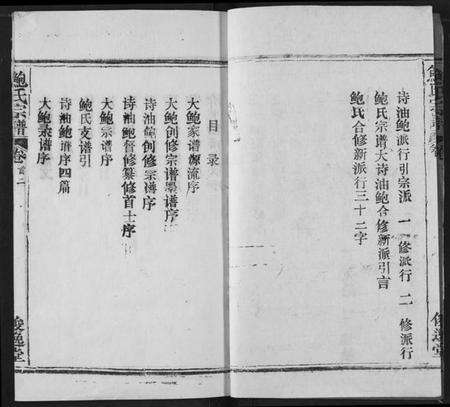 诗油鲍派行引宗派 一修派行 二修派行
鲍氏宗谱大诗油鲍合修新派引言
鲍氏合修新派行三十二字
俊逸堂
目录
大鲍家谱源流序
大鲍创修宗谱墨谱序
诗油鲍创修宗谱序
诗油鲍督修纂修首士序
大鲍宗谱序
鲍氏支谱引
诗油鲍谱序四篇
大鲍宗谱序
鲍氏宗谱
卷首二
俊逸堂